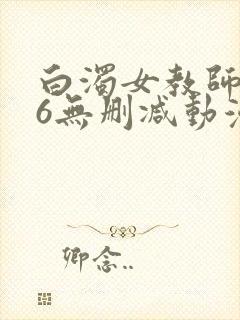 白濁女教師
6無刪减動漫
卿念..